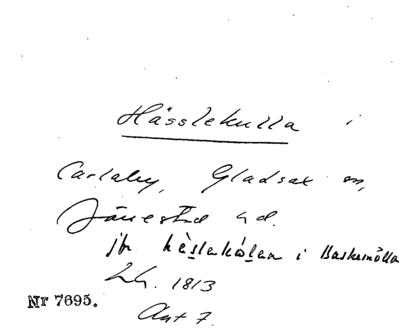 Hässlekulla i
Carlaby, Gladsax sn,
Järrestad hd.
jfr hèslekúlan i Baskemölla
Lh. 1813
Akt 7.
Nr 7695.